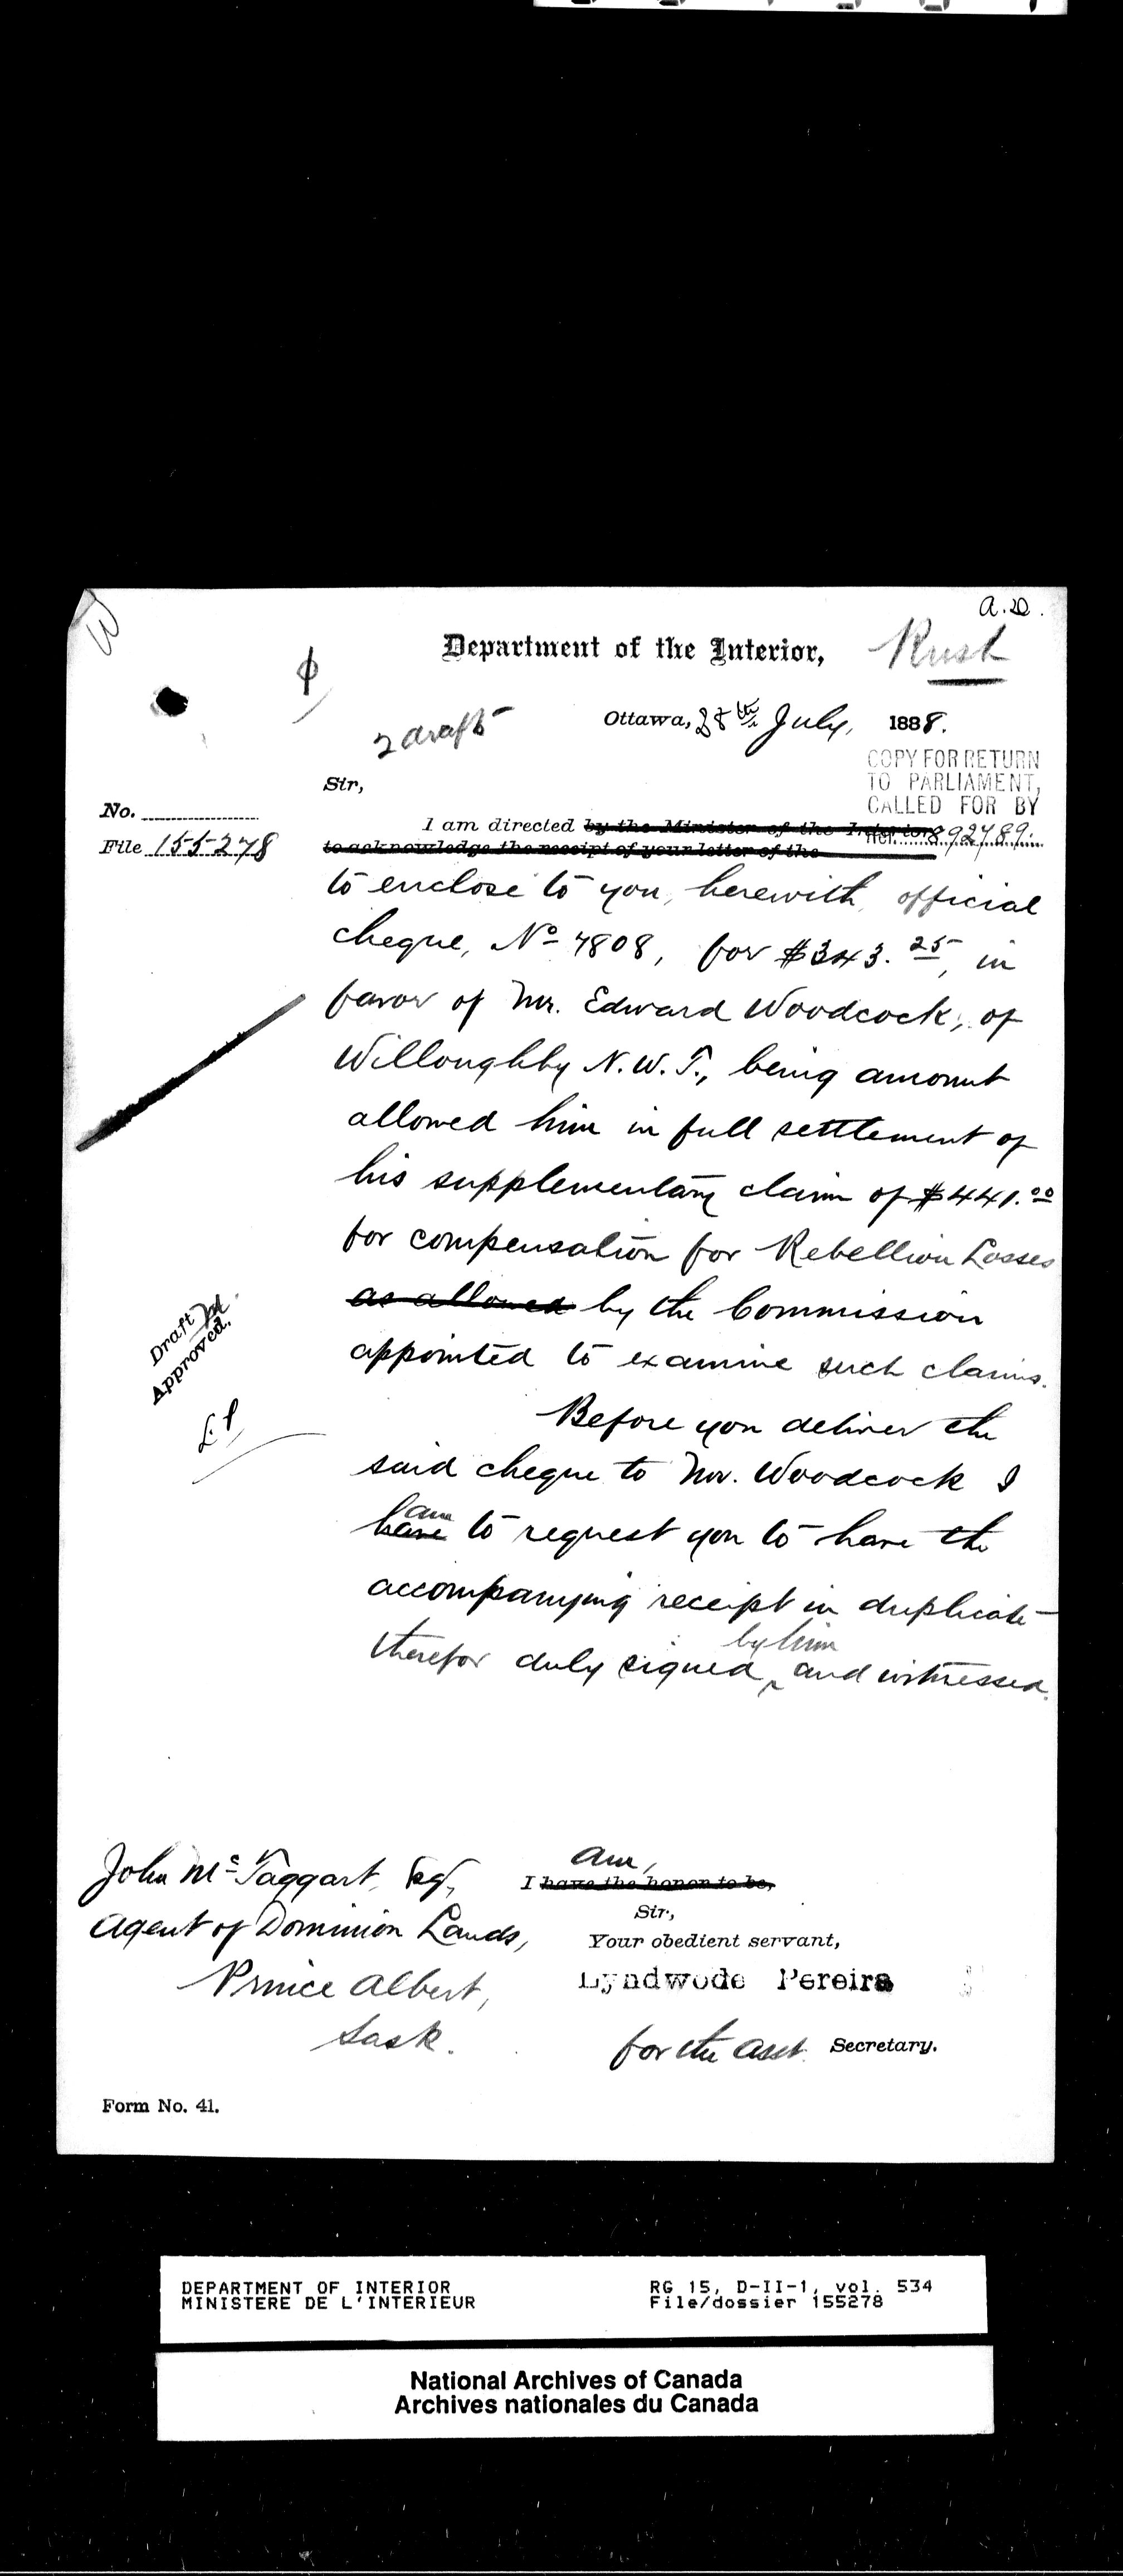 a.D.
Department of the Interior,
Rush
2 drafts
Ottawa, 28th July, 1888.
COPY FOR RETURN
TO PARLIAMENT,
CALLED FOR BY
Ref. 892789.
Sir,
No.
File 155278
I am directed by the Minister of the Interior
to acknowledge the receipt of your letter of the
to enclose to you, herewith, official
cheque, No 7808, for $343.25, in
favor of Mr. Edward Woodcock, of
Willoughby N.W.T., being amount
allowed him in full settlement of
his supplementary claim of $441.00
for compensation for Rebellion Losses
as allowed by the Commission
appointed to examine such claims.
Draft
Approved.
L.P
Before you deliver the
said cheque to Mr. Woodcock I
have am to request you to have the
accompanying receipt in duplicate
therefor duly signed by him and witnessed.
John McTaggart, Esq.,
Agent of Dominion Lands,
Prince Albert,
Sask.
am,
I have the honor to be,
Sir,
Your obedient servant,
Lyndwode Pereira
for the Asst. Secretary.
Form No. 41.
DEPARTMENT OF INTERIOR
MINISTERE DE L'INTERIEUR
RG 15, D-II-1, vol. 534
File/dossier 155278
National Archives of Canada
Archives nationales du Canada